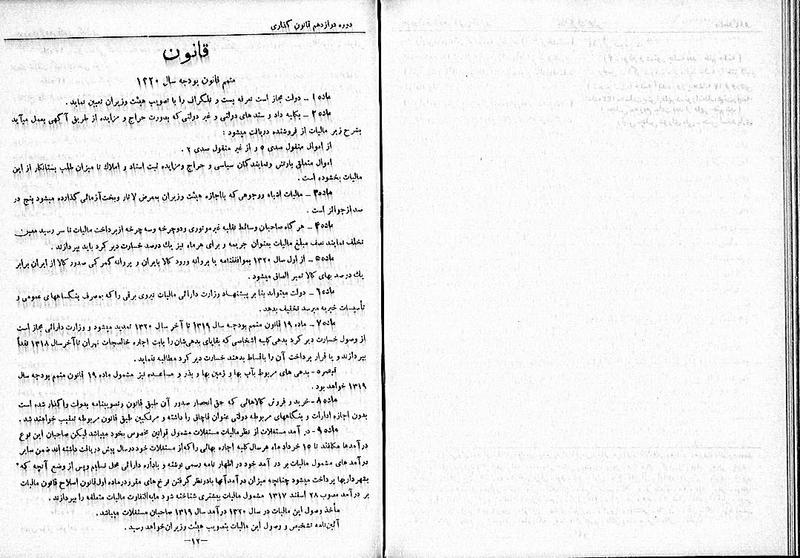 دوره دوازدهم قانون گذاری
قانون
متمم قانون بودجه سال ۱۳۲۰
ماده ۱ ـ دولت مجاز است تعرفه پست و تلگراف را با تصویب هیئت وزیران تعیین نماید.
ماده ۲ ـ بکلیه داد و ستدهای دولتی و غیر دولتی که بصورت حراج و مزایده از طریق آگهی بعمل میآید
بشرح زیر مالیات از فروشنده دریافت میشود :
از اموال منقول صدی ۵ و از غیر منقول صدی ۲ .
اموال متعلق بارتش ونمایندگان سیاسی و حراج ومزایده ثبت اسناد و املاک تا میزان طلب بستانکار از این
مالیات بخشوده است .
ماده ۳ ـ مالیات اشیاء ووجوهی که بااجازه هیئت وزیران بمعرض لاتار وبخت آزمائی گذارده میشود پنج در
صد ازجوائز است .
ماده ۴ ـ هر گاه صاحبان وسائط نقلیه غیرموتوری ودوچرخه وسه چرخه ازپرداخت مالیات تا سر رسید معین
تخلف نمایند نصف مبلغ مالیات بعنوان جریمه و برای هرماه نیز یك درصد خسارت دیر کرد باید بپردازند .
ماده ۵ ـ از اول سال ۱۳۲۰ بموافقتنامه یا پروانه ورود کالا بایران و پروانه گمرکی صدور کالا از ایران برابر
یك در صد بهای کالا تمبر الصاق میشود .
ماده ۶ ـ دولت میتواند بنا بر پیشنهاد وزارت دارائی مالیات نیروی برقی راکه بمصرف بنگاههای عمومی و
تأسیسات خیریه میرسد تخفیف بدهد .
ماده ۷ ـ ماده ۱۹ قانون متمم بودجه سال ۱۳۱۹ تا آخر سال ۱۳۲۰ تمدید میشود و وزارت دارائی مجاز است
از وصول خسارت دیر کرد بدهی کلیه اشخاصی که بقایای بدهی‌شان را بابت اجاره خالصجات تهران تاآخرسال ۱۳۱۸ نقداً
بپردازند و یا قرار پرداخت آن را باقساط بدهند خسارت دیر کرد مطالبه ننماید .
تبصره ـ بدهی های مربوط بآب بها و زمین بها و بذر و مساعده نیز مشمول ماده ۱۹ قانون متمم بودجه سال
۱۳۱۹ خواهد بود .
ماده ۸ ـ خرید و فروش کالاهائی که حق انحصار صدور آن طبق قانون وتصویبنامه بدولت واگذار شده است
بدون اجازه ادارات و بنگاههای مربوطه دولتی عنوان قاچاق را داشته و مرتکبین طبق قانون مربوطه تعقیب خواهند شد .
ماده ۹ ـ در آمد مستغلات از نظر مالیات مستغلات مشمول قوانین مخصوص بخود میباشد لیکن صاحبان این نوع
درآمدها مکلفند تا ۱۵ خرداد ماه هرسال کلیه اجاره بهائی راکه از مستغلات خود درسال پیش دریافت داشته اند ضمن سایر
درآمد های مشمول مالیات بر در آمد خود در اظهار نامه رسمی نوشته و باداره دارائی محل تسلیم وپس از وضع آنچه که
بشهرداریها پرداخت میشود چنانچه میزان درآمدآنها بادرنظر گرفتن نرخ های مقرر درماده اول قانون اصلاح قانون مالیات
بر درآمد مصوب ۲۸ اسفند ۱۳۱۷ مشمول مالیات بیشتری شناخته شود مابه‌التفاوت مالیات متعلقه را بپردازند .
مأخذ وصول این مالیات در سال ۱۳۲۰ درآمد سال ۱۳۱۹ صاحبان مستغلات میباشد.
آئین‌نامه تشخیص و وصول این مالیات بتصویب هیئت وزیران خواهد رسید .
ـ۱۲ـ